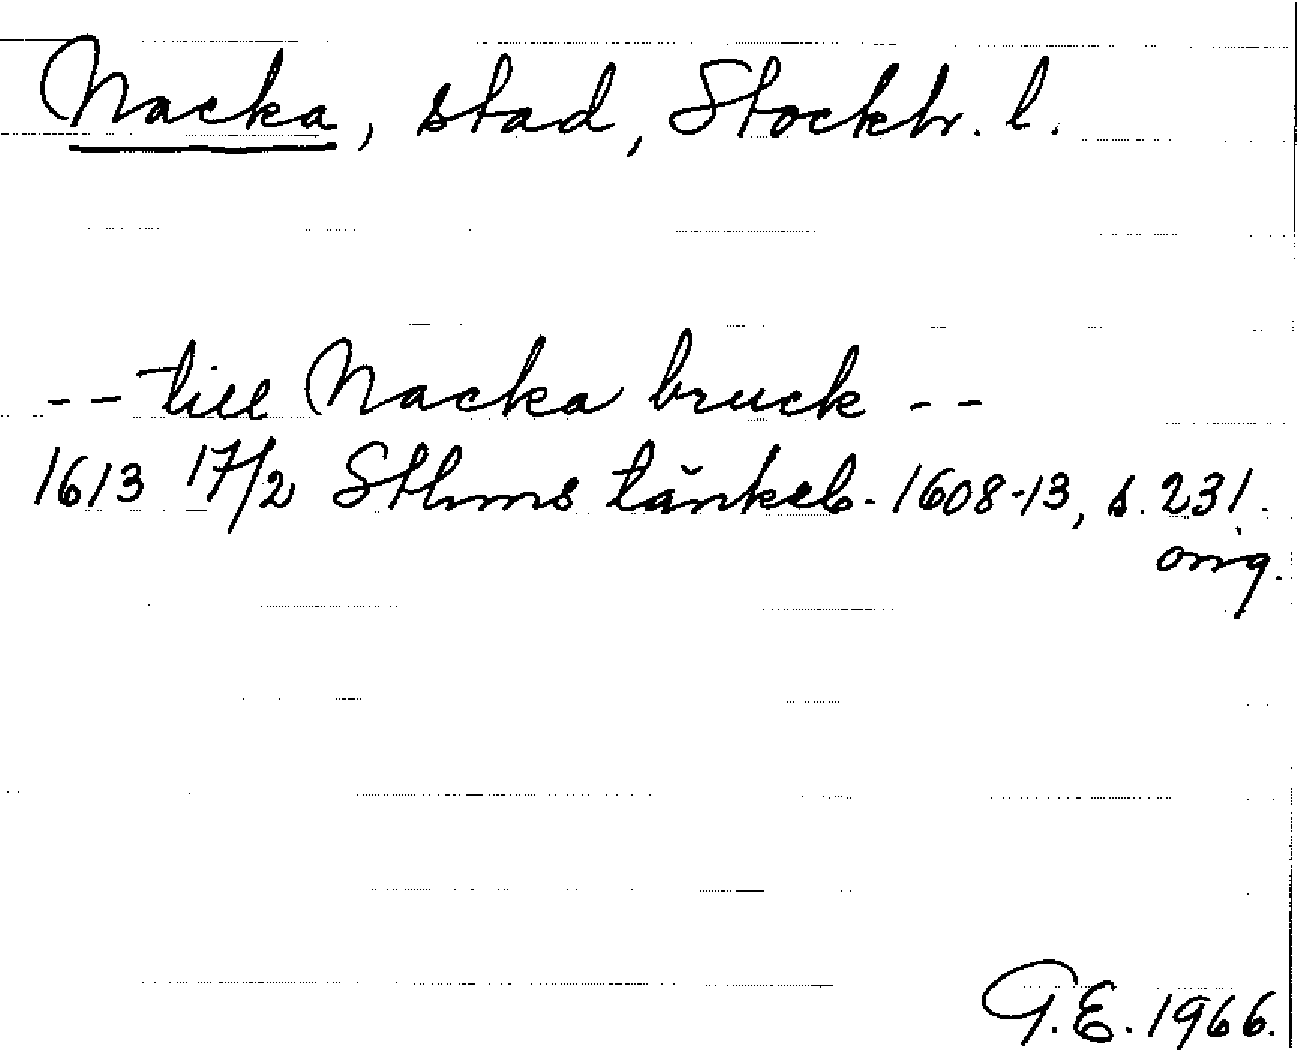 Nacka, stad, Stockh. l.
-- till Nacka bruck --
1613 17/2 Sthms tänkeb. 1608-13, s. 231.
orig.
G.E. 1966.